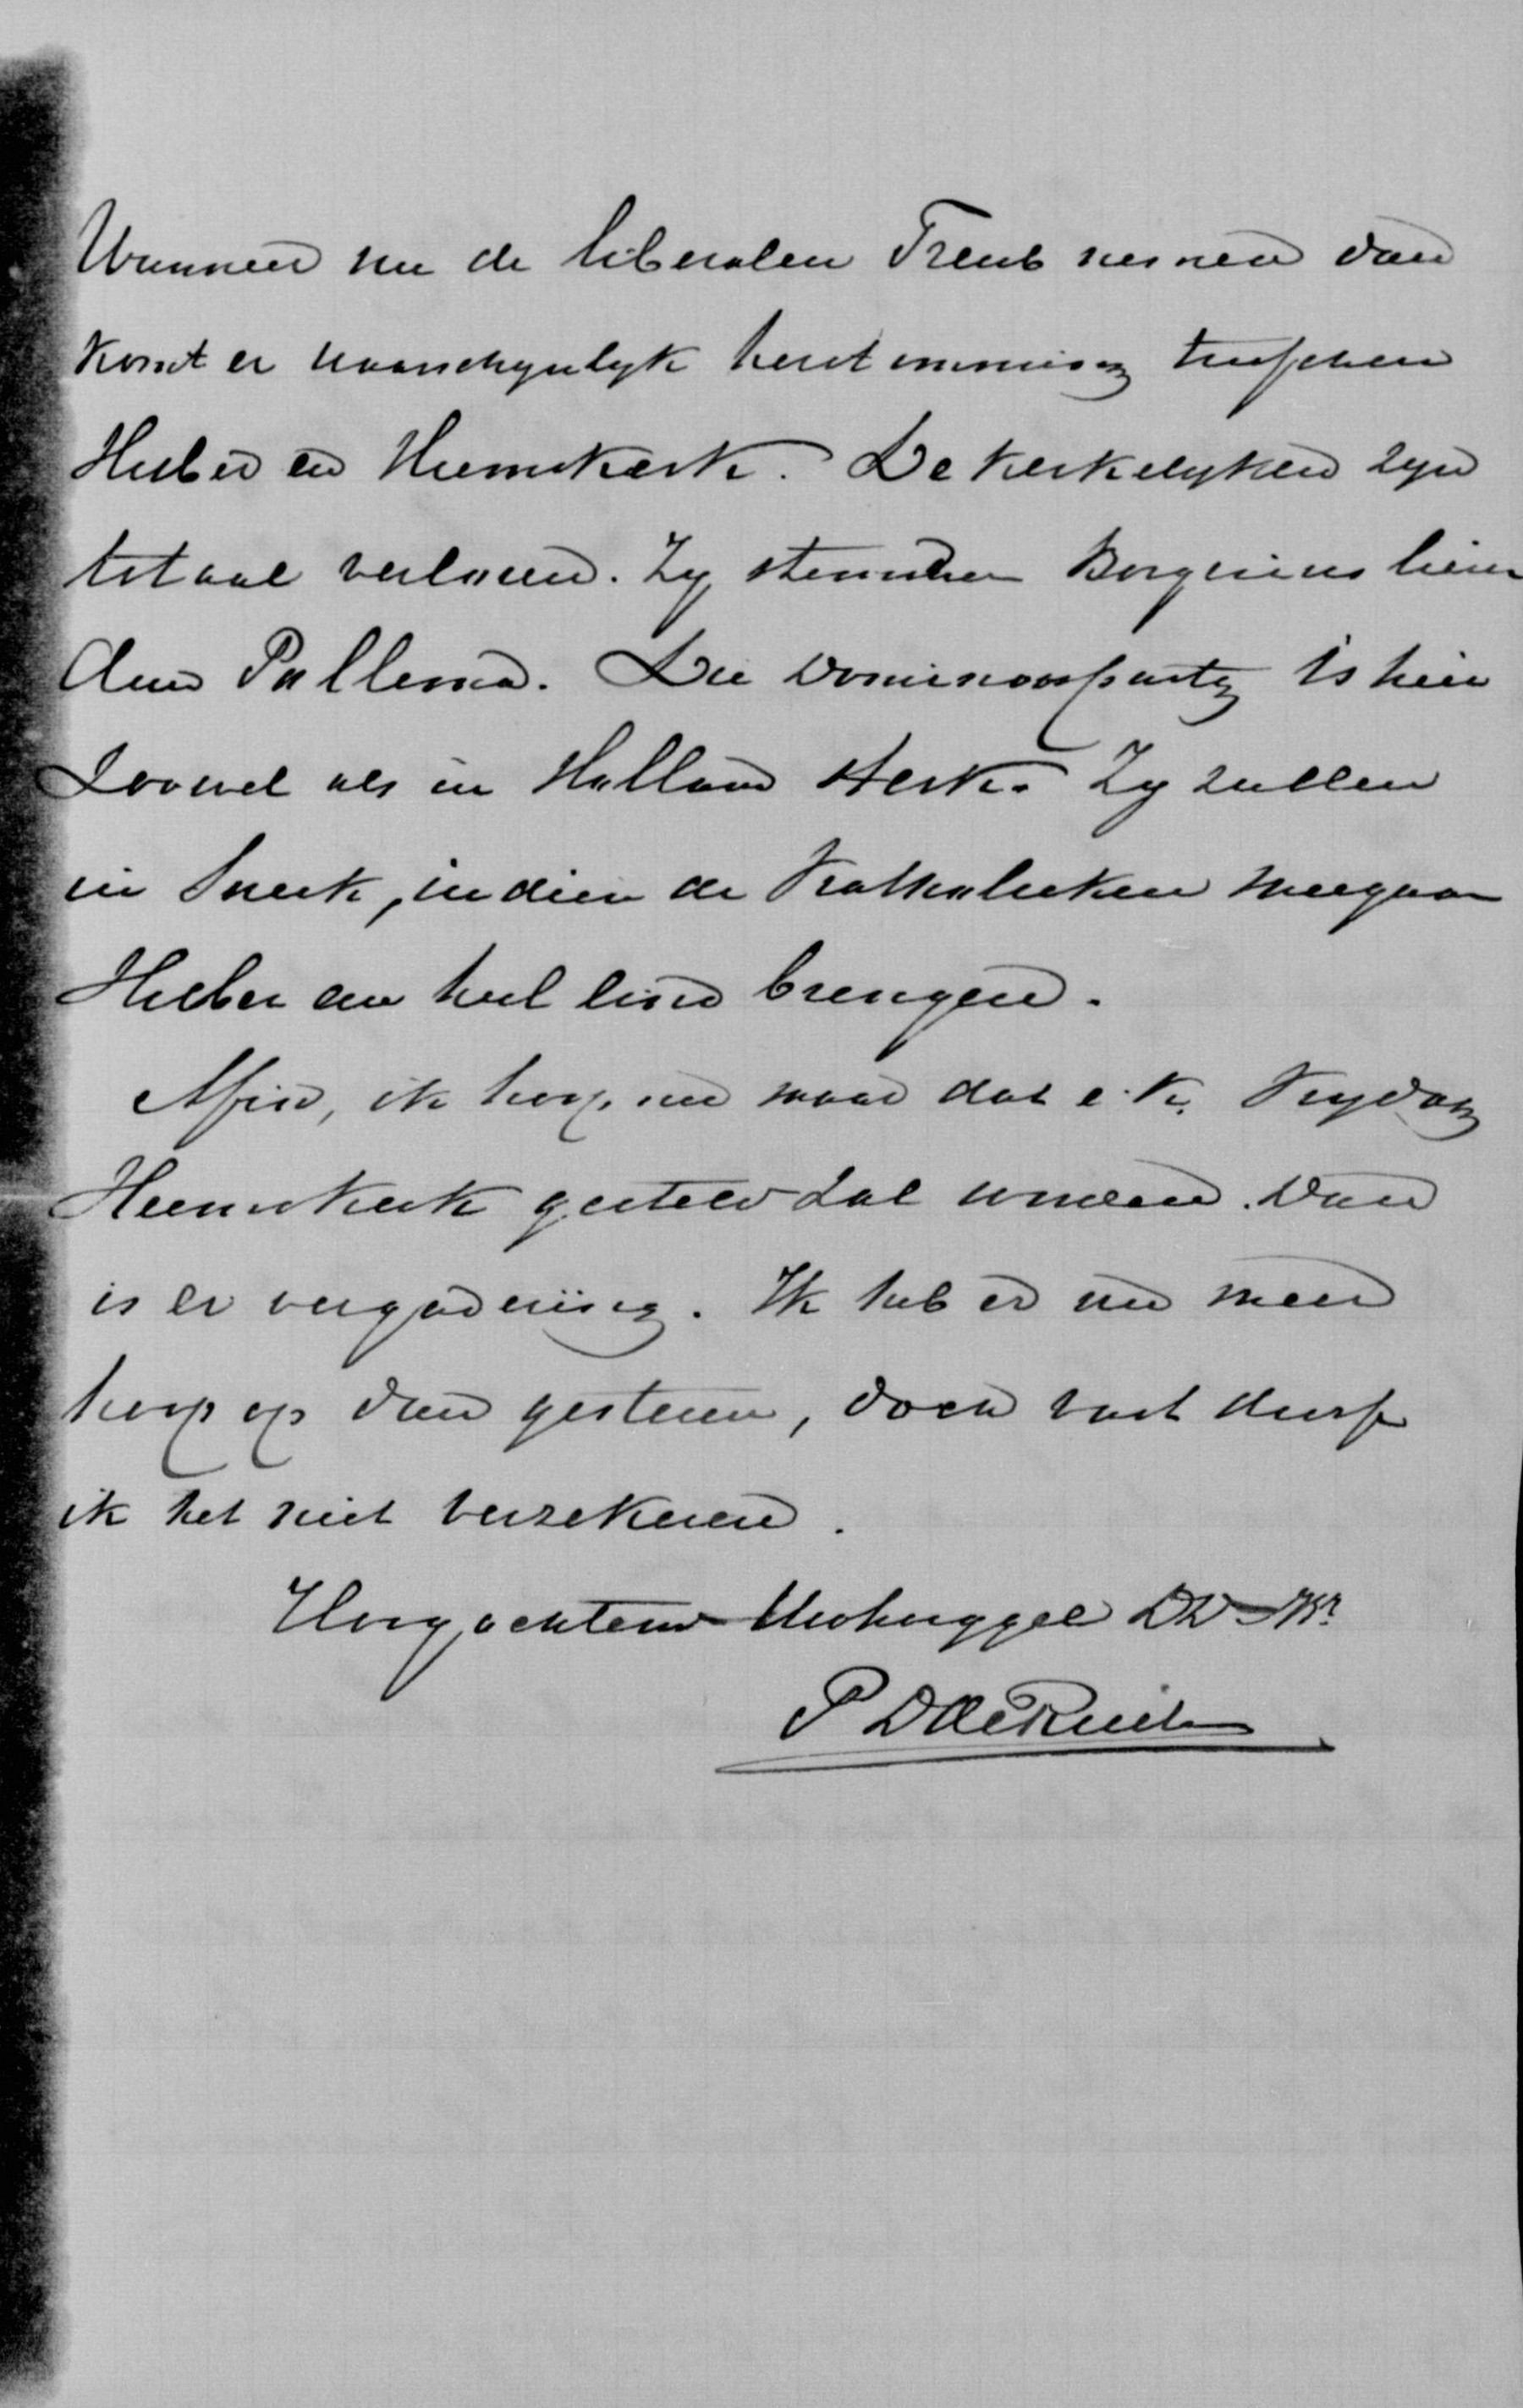 Wanneer nu de liberalen Treub nemen dan
komt er waarschynlyk herstemming tusschen
Huber en Heemskerk. De kerkelyken zyn
totaal verloren. Zy stemden Borgesius liever
dan Pollema. Die Domineespartij is hier
zoowel als in Holland sterk. Zy zullen
in Sneek, indien de Katholieken meegaan
Huber een heel eind brengen.
Afin, ik hoop nu maar dat e.k. Vrydag
Heemskerk gesteld zal worden. Dan
is er vergadering. Ik heb er nu meer
hoop op dan gisteren, doch vast durf
ik het niet verzekeren.
Hoogachtend Uwhoogged DW Dr